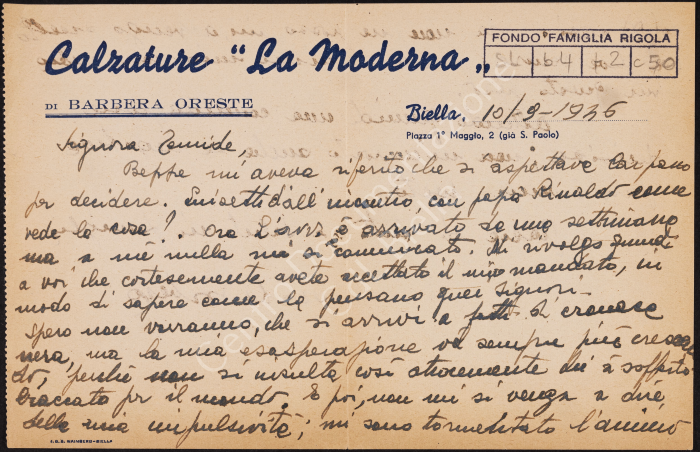 Calzature "La Moderna„
DI BARBERA ORESTE
FONDO FAMIGLIA RIGOLA
C 50
Biella, 10/9-1946
Piazza 1° Maggio, 2 (già S. Paolo)
Signora Zenaide,
Beppe mi aveva riferito che si aspettava Carpano
per decidere. dall'incontro con papà Rinaldo come
vede la cosa? Ora è arrivato da una settimana
ma a me nulla mi si comunicato. Mi rivolgo quindi
a voi che cortesemente avete accettato il mio mandato, in
modo di sapere come la pensano quei Signori.
Spero non vorranno, che si arrivi a fatti di cronaca
nera, ma la mia esasperazione va sempre più crescen
do, perché non si insulta così atrocemente chi à soffrito
braccato per il mondo. E poi, non mi si venga a dire
della mia impulsività; mi sono tormentato l'animo